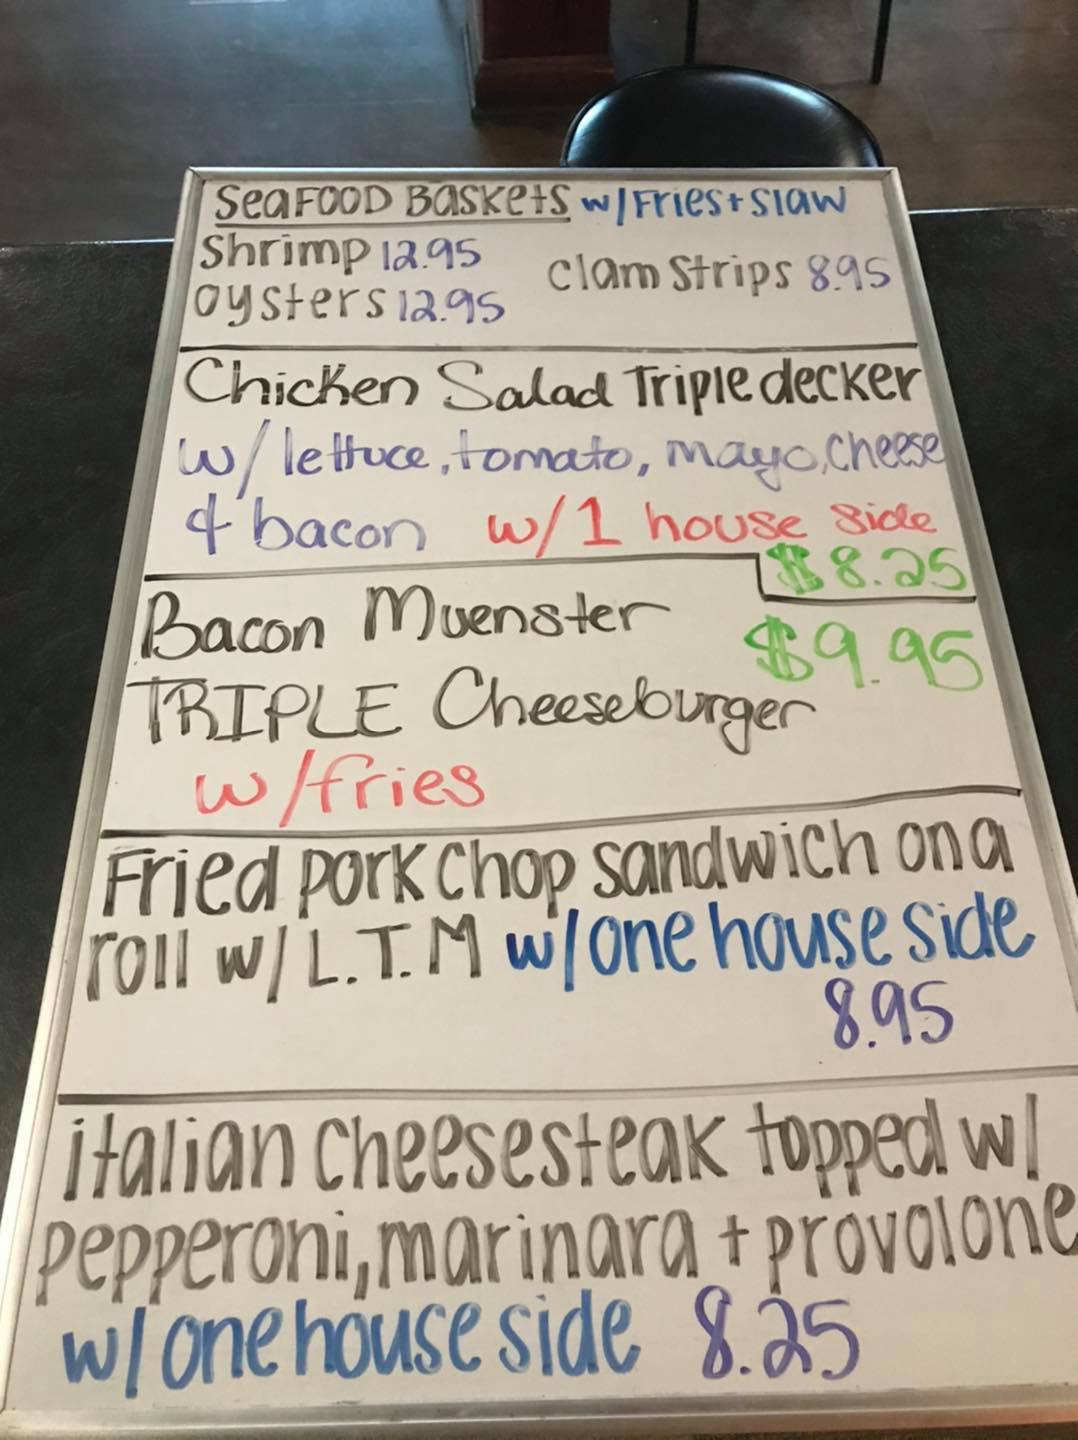 SeaFOOD BaskEtS w/Fries+Slaw
Shrimp 12.95
Clam Strips 8.95
oysters 12.95
Chicken Salad Triple decker
w/ lettuce, tomato, mayo, cheese
& bacon w/1 house side
$8.25
Bacon Muenster
$9.95
TRIPLE Cheeseburger
w/fries
Fried pork chop sandwich on a
roll w/ L.T.M w/one house side
8.95
italian cheesesteak topped w/
pepperoni, marinara + provolone
w/one house side 8.25